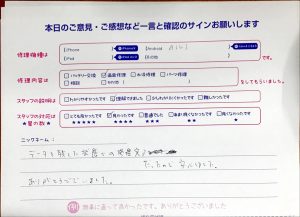 本日のご意見・ご感想など一言と確認のサインお願いします
修理機種は
iPhone
Android
iPad
修理内容は
バッテリー交換 画面修理 水没修理 パーツ修理
相談 その他
をしてもらいました。
スタッフの説明は
わかりやすかったです 理解できました 少しわかりにくかったです 難しかったです
スタッフの対応は
★星の数★
とても良かったです 良かったです 普通でした あまり良くなかったです 良くなかったです
★★★★★ ★★★★ ★★★ ★★ ★
ニックネーム:
データも残した状態での
ありがとうございました。
無事に直って良かったです。ありがとうございました